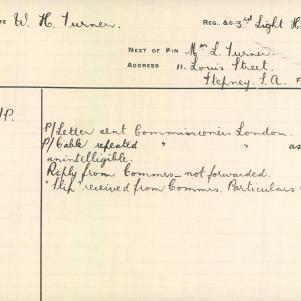 ME W. H. Turner. REG. &C 3rd Light H
NEXT OF KIN Mrs L. Turner.
ADDRESS 11. Louis Street.
Stepney. S.A. F
/P.
P/Letter sent Commissioner London.
P/Cable repeated " " as
unintelligible.
Reply from Commrs_ not forwarded.
"Slip" received from Commrs. Particulars